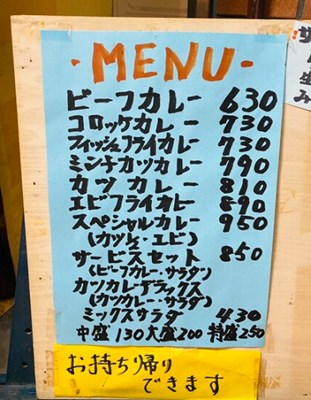 ・MENU・
ビーフカレー 630
コロッケカレー 730
フィッシュフライカレー 730
ミンチカツカレー 790
カツカレー 810
エビフライカレー 890
スペシャルカレー 950
(カツ・エビ)
サービスセット 850
(ビーフカレー・サラダ)
カツカレーデラックス
(カツカレー・サラダ)
ミックスサラダ 430
中盛130大盛200 特盛250
お持ち帰り
できます
サ
生
み